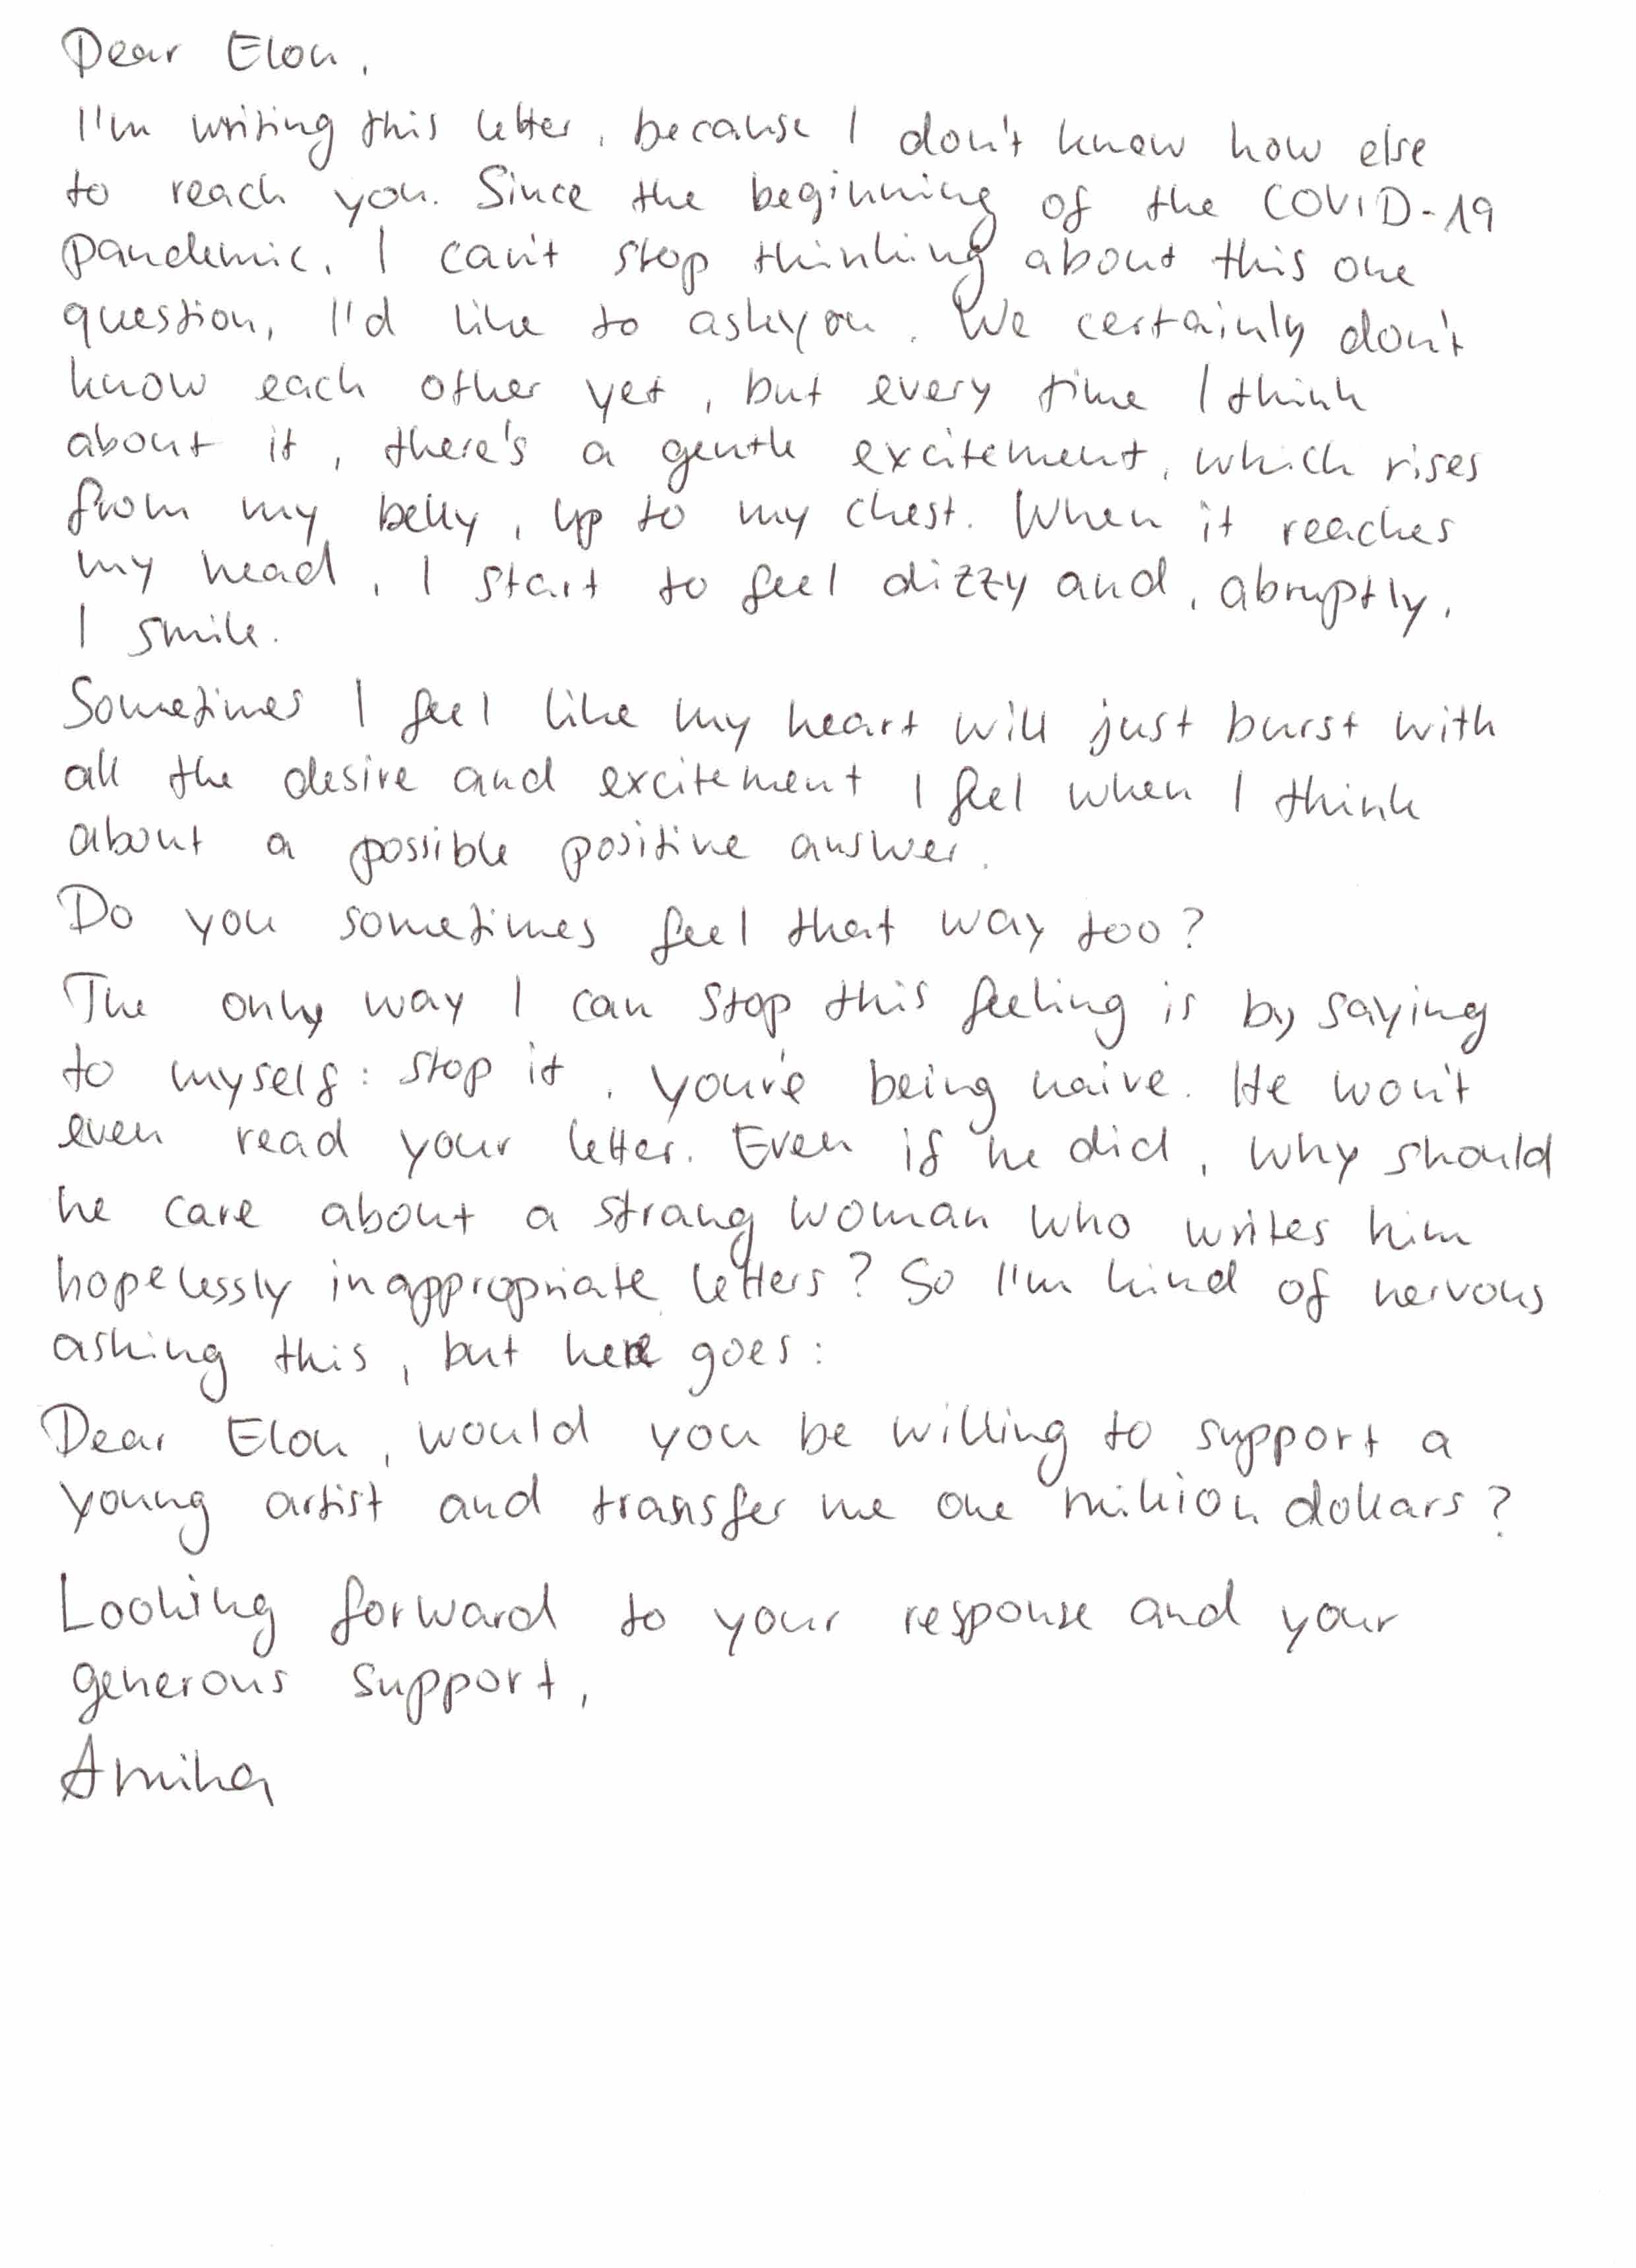 Dear Elon,
I'm writing this letter, because I don't know how else
to reach you. Since the beginning of the COVID-19
pandemic, I can't stop thinking about this one
question, I'd like to ask you. We certainly don't
know each other yet, but every time I think
about it, there's a gentle excitement, which rises
from my belly, up to my chest. When it reaches
my head, I start to feel dizzy and, abruptly,
I smile.
Sometimes I feel like my heart will just burst with
all the desire and excitement I feel when I think
about a possible positive answer.
Do you sometimes feel that way too?
The only way I can stop this feeling is by saying
to myself: stop it, you're being naive. He won't
even read your letter. Even if he did, why should
he care about a strang woman who writes him
hopelessly inappropriate letters? So I'm kind of nervous
asking this, but here goes:
Dear Elon, would you be willing to support a
young artist and transfer me one million dollars?
Looking forward to your response and your
generous support,
Amina